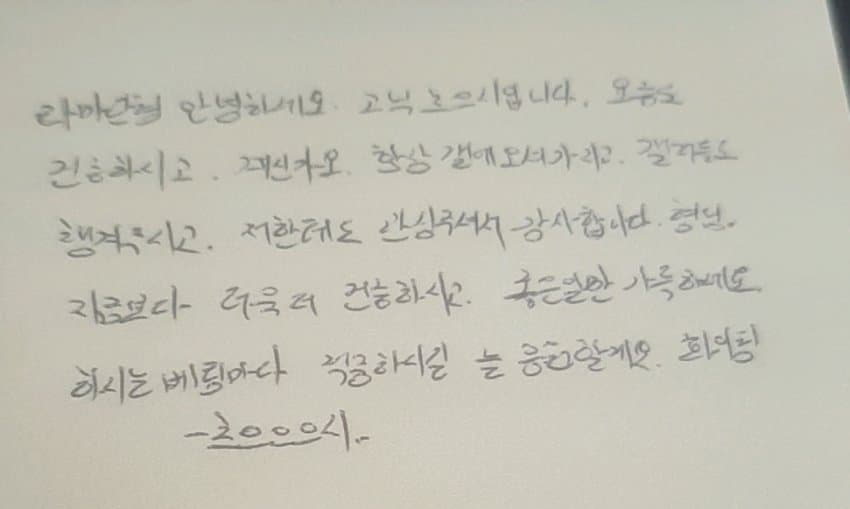 라마단형 안녕하세요. 고닉 초으시입니다. 오늘도
건승하시고. 항상 갤에 오셔가지고. 갤러들도
챙겨주시고. 저한테도 관심주셔서 감사합니다. 형님.
지금보다 더욱 더 건승하시고. 좋은일만 가득하세요
하시는 베팅마다 적중하시길 늘 응원할게요. 화이팅
-초ㅇㅇㅇ시-